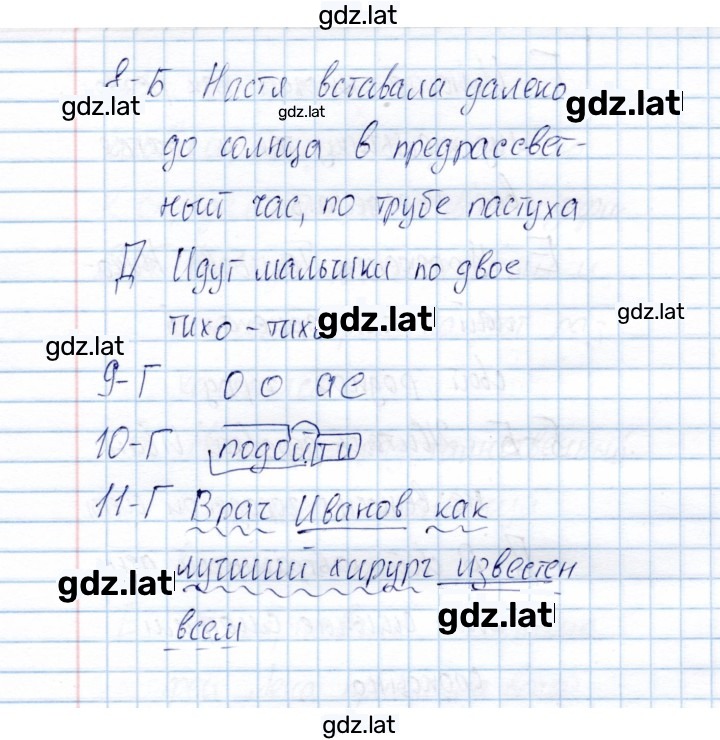 gdz.lat
8-Б Настя вставала далеко
gdz.lat gdz.lat gdz.lat
до солнца в предрассвет-
ный час, по трубе пастуха
Д Идут мальчики по двое
тихо-тихо gdz.lat gdz.lat
gdz.lat
9-Г о о а е
10-Г подойти
11-Г Врач Иванов как
лучший хирург известен
gdz.lat
всем gdz.lat
gdz.lat